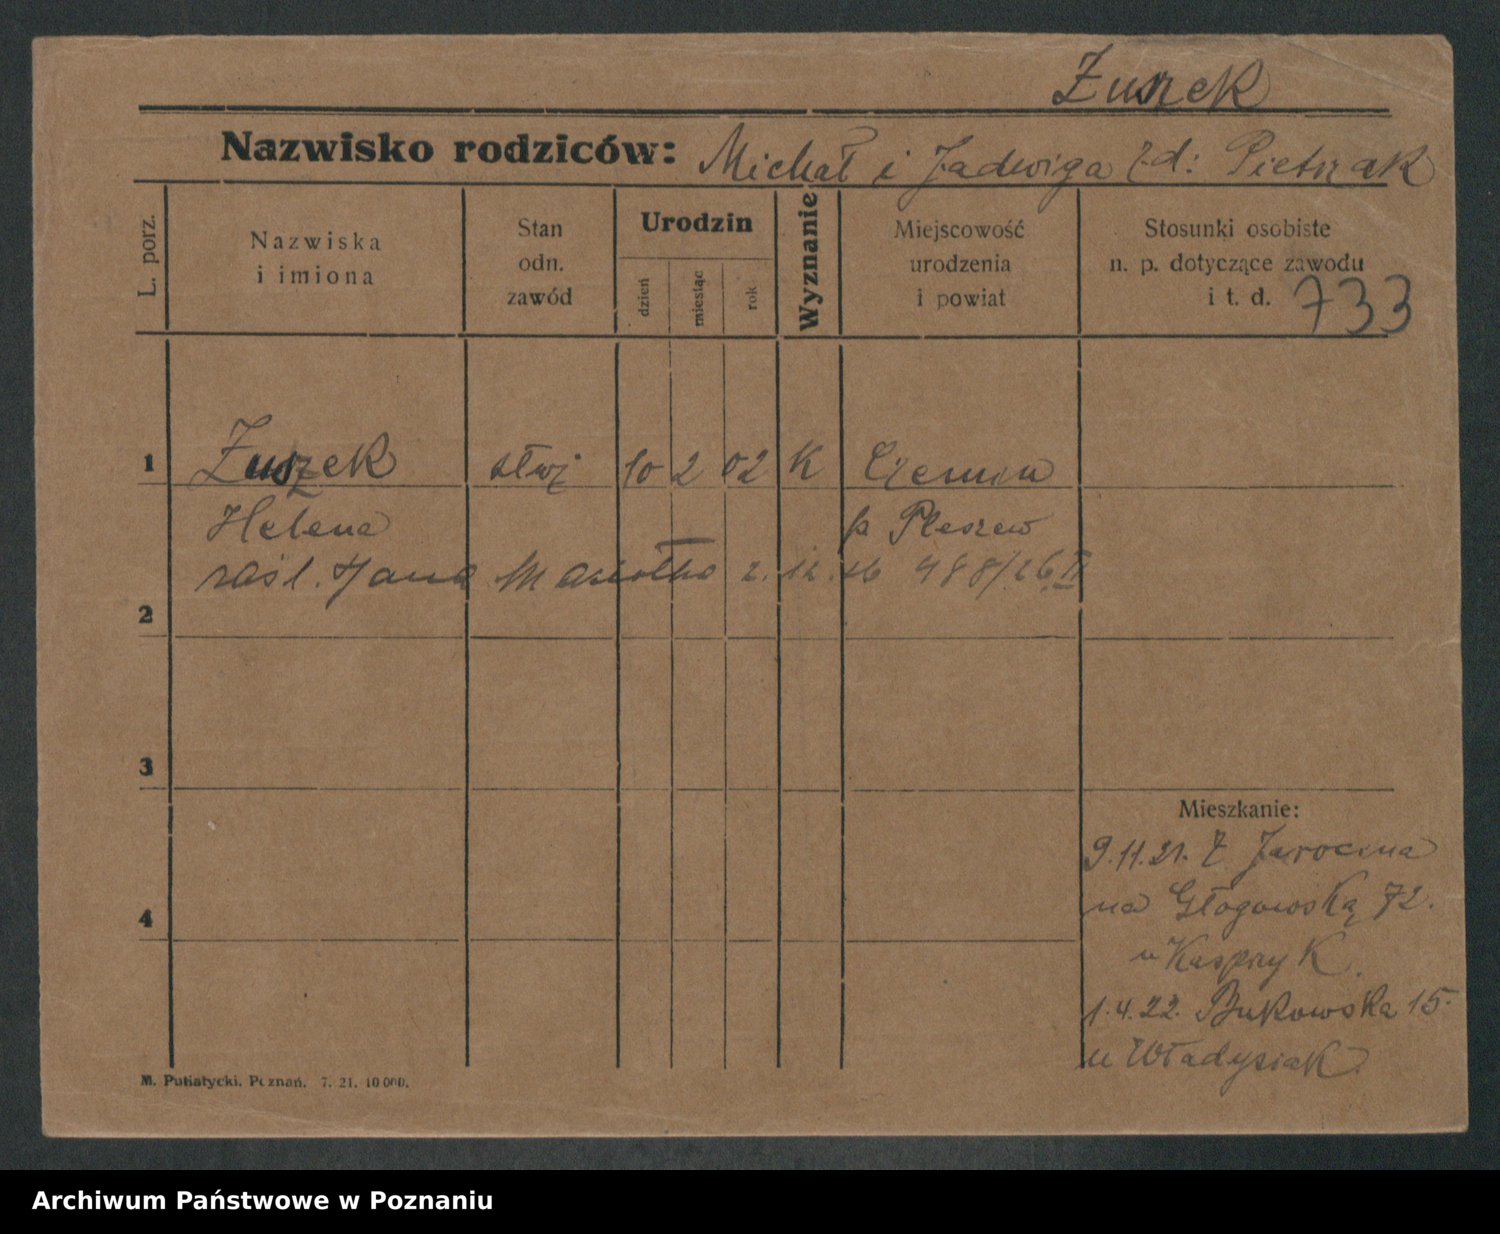 Żurek
Nazwisko rodziców: Michał i Jadwiga z d: Pietrzak
L. porz.
Nazwiska
i imiona
Stan
odn.
zawód
Urodzin
dzień
miesiąc
rok
Wyznanie
Miejscowość
urodzenia
i powiat
Stosunki osobiste
n. p. dotyczące zawodu
i t. d. 733
1 służ 10 2 02 K
Helena p Pleszew
zaśl. Jana 2.12.26 488/26 II
2
3
4
Mieszkanie:
9.11.21. z Jarocina
na Głogowską 72.
u Kaspryk.
1.4.22. Bukowska 15.
u Władysiak
M. Putiatycki. Poznań. 7. 21. 10000.
Archiwum Państwowe w Poznaniu